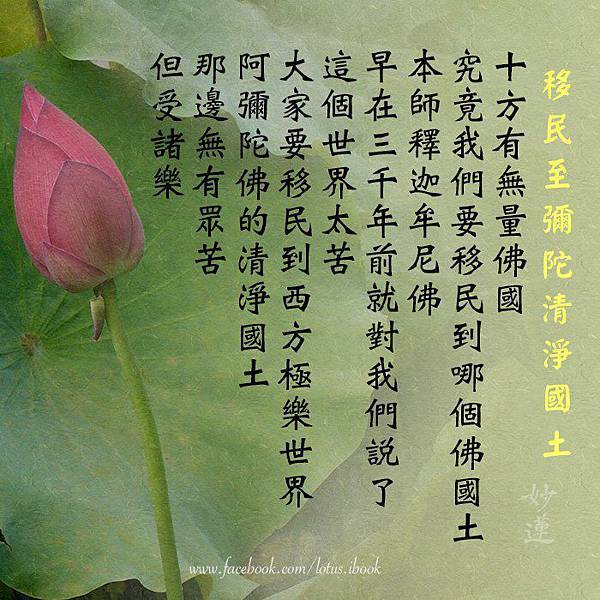 移民至彌陀清淨國土
妙蓮
十方有無量佛國
究竟我們要移民到哪個佛國土
本師釋迦牟尼佛
早在三千年前就對我們說了
這個世界太苦
大家要移民到西方極樂世界
阿彌陀佛的清淨國土
那邊無有眾苦
但受諸樂
www.facebook.com/lotus.ibook